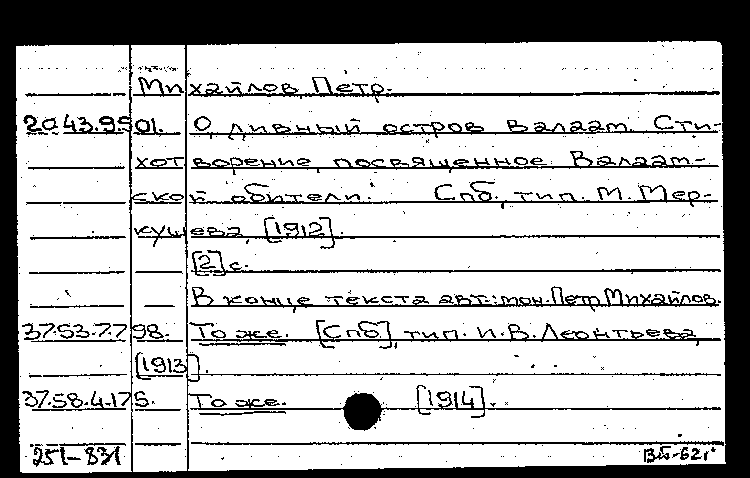 Михайлов, Петр.
20.43.9.501. О, дивный остров Валаам. Сти-
хотворение, посвященное Валаам-
ской обители. Спб, тип. М. Мер-
кушева, [1912].
[2] с.
В конце текста авт.: мон. Петр Михайлов.
37.53.7.798. То же. [Спб], тип. И. В. Леонтьева,
[1913].
37.58.4.175. То же. [1914].
251-831 ВБ-62г